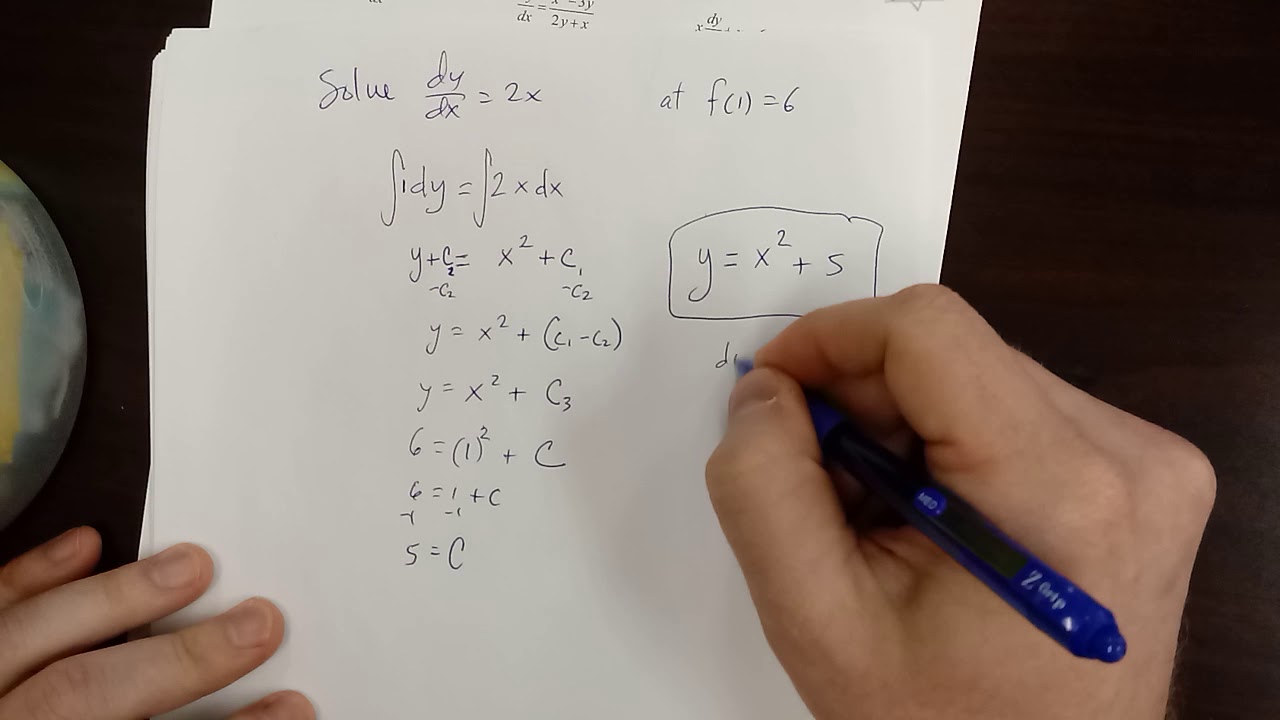 dx = x² - 3y / 2y + x
x dy
Solve dy/dx = 2x at f(1) = 6
∫1dy = ∫2x dx
y + C₂ = x² + C₁
-C₂ -C₂
y = x² + (C₁ - C₂)
y = x² + C₃
6 = (1)² + C
6 = 1 + C
-1 -1
5 = C
y = x² + 5
dy
Z Grip